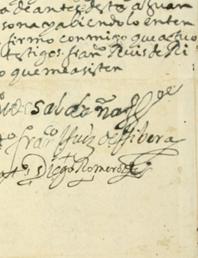 a de antes desta a Juan
sona y abiendolo enten
firmo conmigo que actuo
testigos fran.co Ruis de Ri
o que me asisten
de Saldaña
fran.co Ruiz de Ribera
Diego Romero